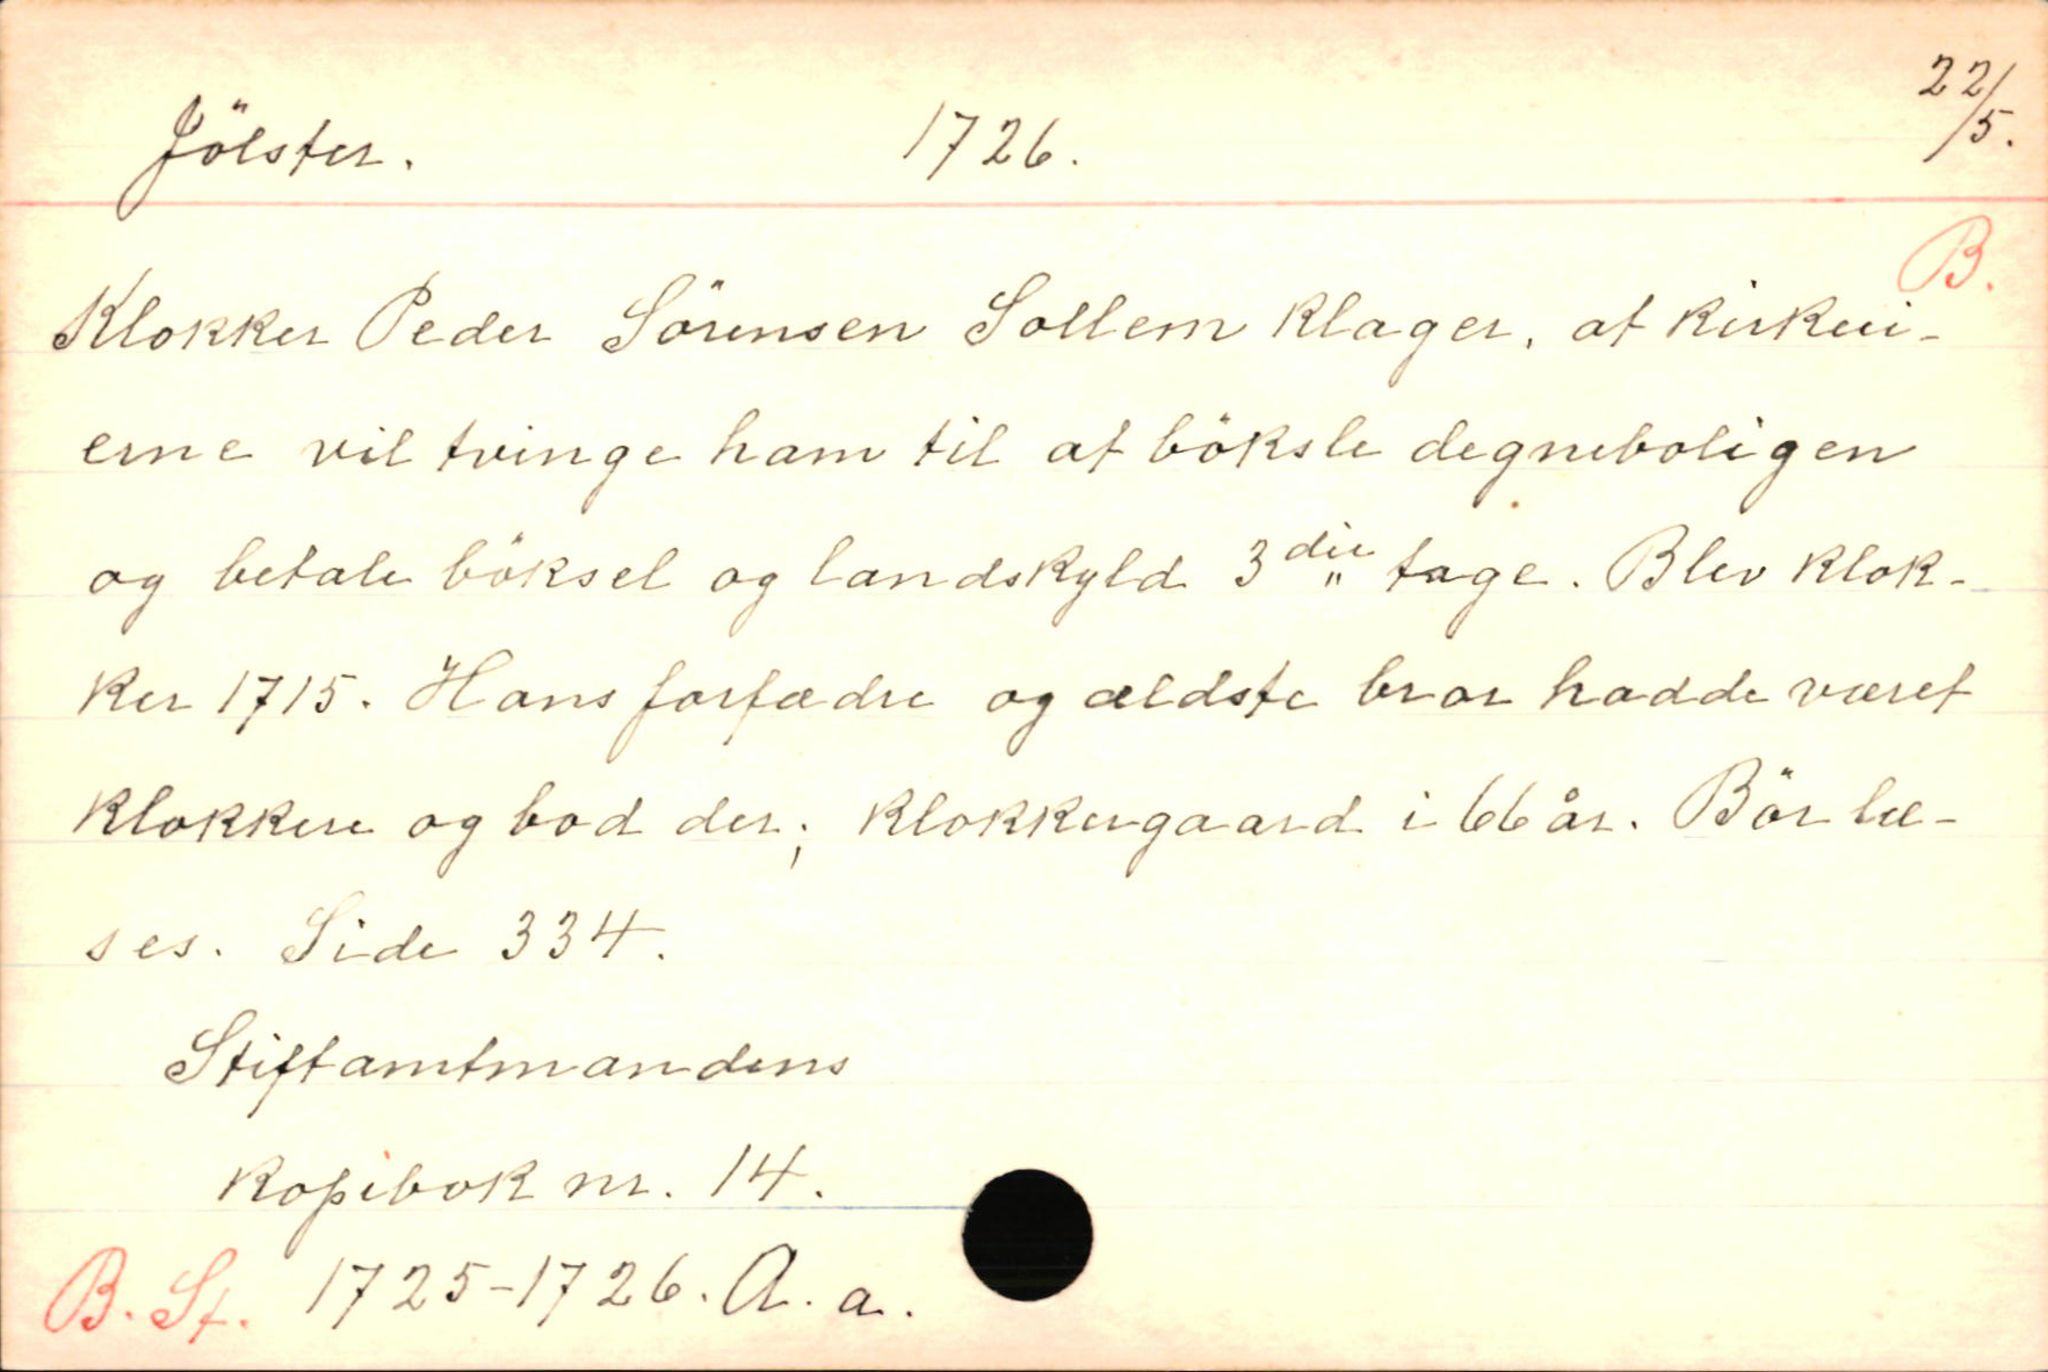 Jölster. 1726. 22/5.
B.
Klokker Peder Sörensen Sollem klager, at kirkeei-
erne vil tvinge ham til at böksle degneboligen
og betale böksel og landskyld 3die tage. Blev klok-
ker 1715. Hans forfædre og ældste bror hadde været
klokkere og bod der; klokkergaard i 66 år. Bör læ-
ses. Side 334.
Stiftamtmandens
kopibok nr. 14.
B. St. 1725-1726. A. a.